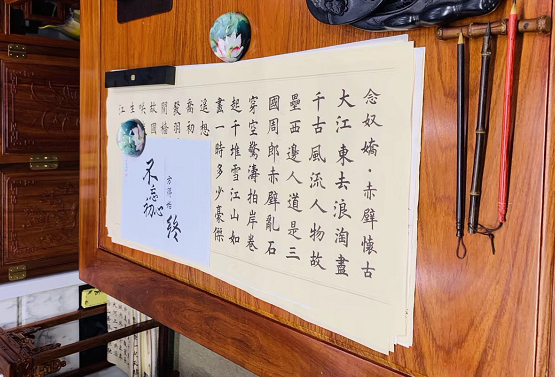 念奴嬌·赤壁懷古
大江東去浪淘盡
千古風流人物故
壘西邊人道是三
國周郎赤壁亂石
穿空驚濤拍岸卷
起千堆雪江山如
畫一時多少豪傑
遙想
喬初
發羽
間檣
故國
生
江
不忘
初心
方得始
終